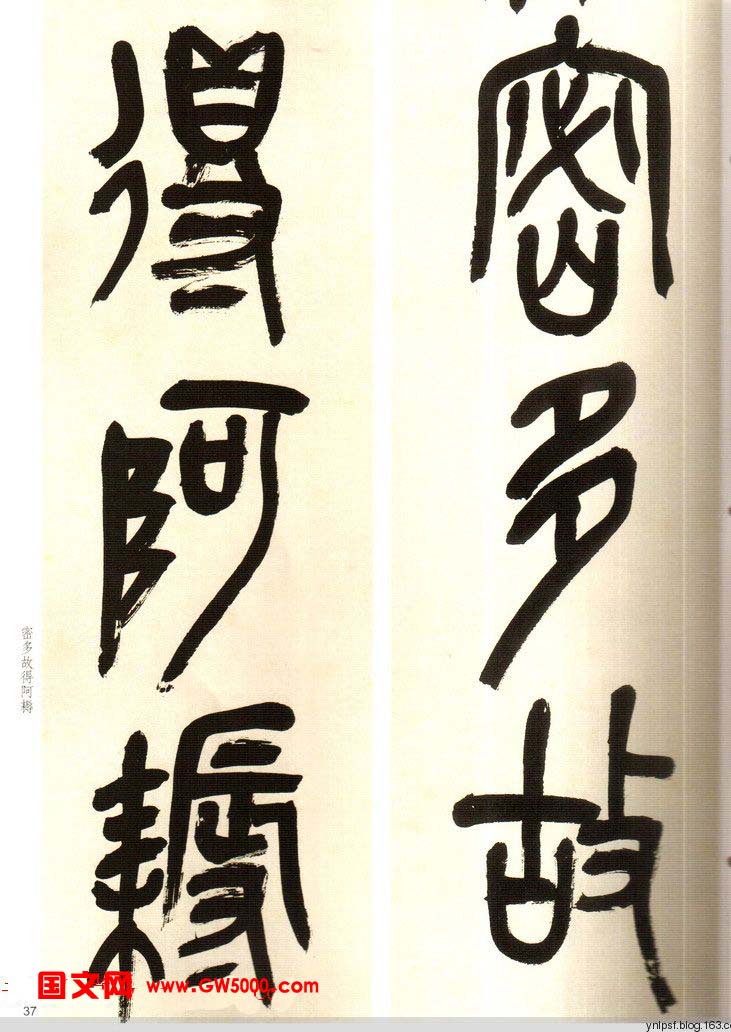 密多故
得阿耨
密多故得阿耨
国文网 www.GW5000.com
37
ynlpsf.blog.163.c